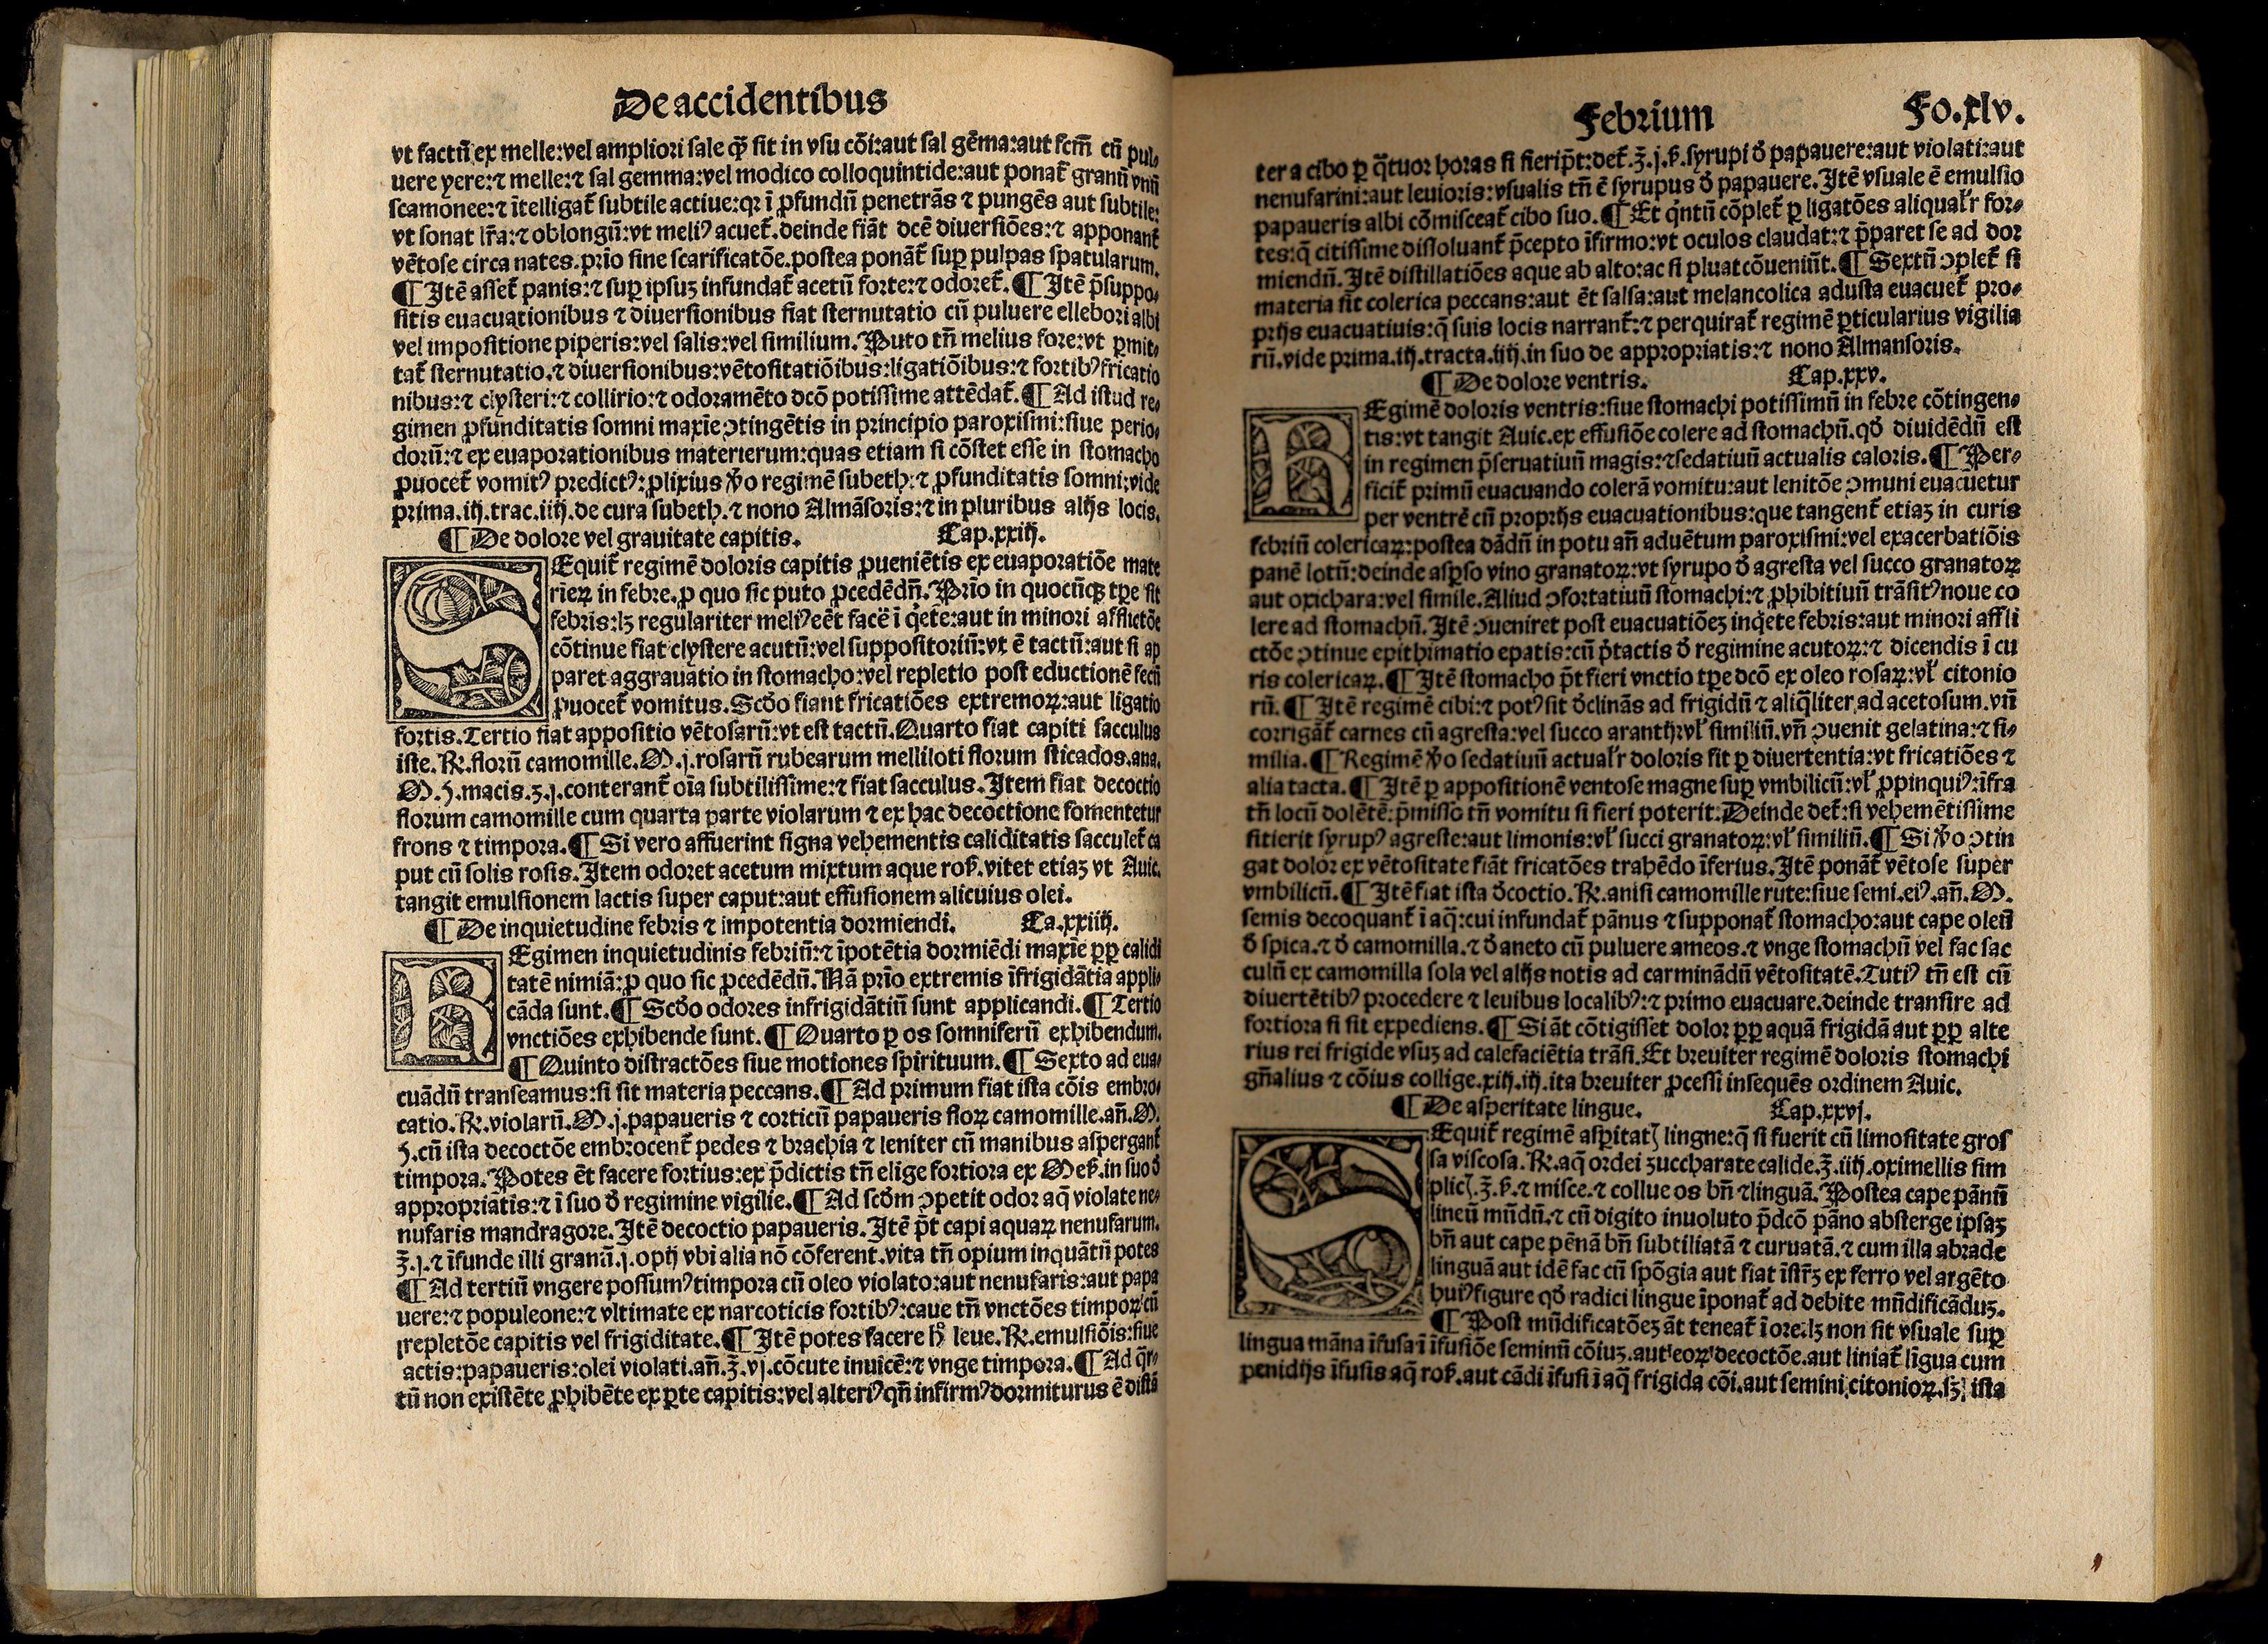 De accidentibus
vt factū ex melle:vel ampliori sale q̄ʒ sit in vsu cōi:aut sal gēma:aut fcm̄ cū pul⸗
uere yere:⁊ melle:⁊ sal gemma:vel modico colloquintide:aut ponat᷑ granū vnū
scamonee:⁊ ītelligat᷑ subtile actiue:qꝛ ī ꝓfundū penetrās ⁊ pungēs aut subtile:
vt sonat lr̄a:⁊ oblongū:vt meliꝰ acuet᷑.deinde fiāt dcē diuersiōes:⁊ apponant᷑
vētose circa nates.prīo sine scarificatōe.postea ponāt᷑ suꝑ pulpas spatularum.
¶ Itē asset᷑ panis:⁊ suꝑ ipsuʒ infundat᷑ acetū forte:⁊ odoret᷑.¶ Itē p̄suppo⸗
sitis euacuationibus ⁊ diuersionibus fiat sternutatio cū puluere ellebori albi
vel impositione piperis:vel salis:vel similium.Puto tn̄ melius fore:vt ꝑmit⸗
tat᷑ sternutatio.⁊ diuersionibus:vētositatiōibus:ligatiōibus:⁊ fortibꝰ fricatio
nibus:⁊ clysteri:⁊ collirio:⁊ odoramēto dcō potissime attēdat᷑.¶ Ad istud re⸗
gimen ꝓfunditatis somni maxīe ↄtingētis in principio paroxismi:siue perio⸗
dorū:⁊ ex euaporationibus materierum:quas etiam si cōstet esse in stomacho
ꝓuocet᷑ vomitꝰ predictꝰ:ꝓlixius v̄o regimē subeth:⁊ ꝓfunditatis somni:vide
prima.iij.trac.iiij.de cura subeth.⁊ nono Almāsoris:⁊ in pluribus alijs locis.
¶ De dolore vel grauitate capitis. Cap.xxiij.
SEquit᷑ regimē doloris capitis ꝓueniētis ex euaporatiōe mate
rieꝝ in febre.ꝓ quo sic puto ꝓcedēdū.Prīo in quocūqʒ tꝑe sit
febris:lʒ regulariter meliꝰ eēt facē ī q̇ete:aut in minori afflictōe
cōtinue fiat clystere acutū:vel suppositoriū:vt ē tactū:aut si ap
paret aggrauatio in stomacho:vel repletio post eductionē fecū
ꝓuocet᷑ vomitus.Scd̄o fiant fricatiōes extremoꝝ:aut ligatio
fortis.Tertio fiat appositio vētosarū:vt est tactū.Quarto fiat capiti sacculus
iste.℞.florū camomille.M.j.rosarū rubearum melliloti florum sticados.ana.
M.ẞ.macis.ʒ.j.conterant᷑ oīa subtilissime:⁊ fiat sacculus.Item fiat decoctio
florum camomille cum quarta parte violarum ⁊ ex hac decoctione fomentetur
frons ⁊ timpora.¶ Si vero affuerint signa vehementis caliditatis sacculet᷑ ca
put cū solis rosis.Item odoret acetum mixtum aque roß.vitet etiaʒ vt Auic.
tangit emulsionem lactis super caput:aut effusionem alicuius olei.
¶ De inquietudine febris ⁊ impotentia dormiendi. Ca.xxiiij.
REgimen inquietudinis febriū:⁊ īpotētia dormiēdi maxīe ꝓꝑ calidi
tatē nimiā:ꝓ quo sic ꝓcedēdū.Nā prīo extremis īfrigidātia appli⸗
cāda sunt.¶ Scd̄o odores infrigidātiū sunt applicandi.¶ Tertio
vnctiōes exhibende sunt.¶ Quarto ꝑ os somniferū exhibendum.
¶ Quinto distractōes siue motiones spirituum.¶ Sexto ad eua⸗
cuādū transeamus:si sit materia peccans.¶ Ad primum fiat ista cōis embro⸗
catio.℞.violarū.M.j.papaueris ⁊ corticū papaueris floꝝ camomille.an̄.M.
ẞ.cū ista decoctōe embrocent᷑ pedes ⁊ brachia ⁊ leniter cū manibus aspergant᷑
timpora.Potes ēt facere fortius:ex p̄dictis tn̄ elige fortiora ex Meß.in suo d̄
appropriatis:⁊ ī suo d̄ regimine vigilie.¶ Ad scd̄m ↄpetit odor aq̄ violate ne⸗
nufaris mandragore.Itē decoctio papaueris.Itē p̄t capi aquaꝝ nenufarum.
℥.j.⁊ īfunde illi granū.j.opij vbi alia nō cōferent.vita tn̄ opium inquātū potes
¶ Ad tertiū vngere possumꝰ timpora cū oleo violato:aut nenufaris:aut papa
uere:⁊ populeone:⁊ vltimate ex narcoticis fortibꝰ:caue tn̄ vnctōes timpoꝝ cū
repletōe capitis vel frigiditate.¶ Itē potes facere h̊ leue.℞.emulsiōis:siue
actis:papaueris:olei violati.an̄.℥.vj.cōcute inuicē:⁊ vnge timpora.¶ Ad q̄r⸗
tū non existēte ꝓhibēte ex ꝑte capitis:vel alteriꝰ qn̄ infirmꝰ dormiturus ē distā
Febrium Fo.xlv.
ter a cibo ꝑ q̄tuor horas si fieri p̄t:det᷑.℥.j.ß.syrupi d̄ papauere:aut violati:aut
nenufarini:aut leuioris:vsualis tn̄ ē syrupus d̄ papauere.Itē vsuale ē emulsio
papaueris albi cōmisceat᷑ cibo suo.¶ Et q̇ntū cōplet᷑ ꝑ ligatōes aliqual'r for⸗
tes:q̄ citissime dissoluant᷑ p̄cepto īfirmo:vt oculos claudat:⁊ p̄paret se ad dor
miendū.Itē distillatiōes aque ab alto:ac si pluat cōueniūt.¶ Sextū ↄplet᷑ si
materia sit colerica peccans:aut ēt salsa:aut melancolica adusta euacuet᷑ pro⸗
prijs euacuatiuis:q̄ suis locis narrant᷑:⁊ perquirat᷑ regimē ꝑticularius vigilia
rū.vide prima.iij.tracta.iiij.in suo de appropriatis:⁊ nono Almansoris.
¶ De dolore ventris. Cap.xxv.
REgimē doloris ventris:siue stomachi potissimū in febre cōtingen⸗
tis:vt tangit Auic.ex effusiōe colere ad stomachū.qd̄ diuidēdū est
in regimen p̄seruatiuū magis:⁊ sedatiuū actualis caloris.¶ Per⸗
ficit᷑ primū euacuando colerā vomitu:aut lenitōe ↄmuni euacuetur
per ventrē cū proprijs euacuationibus:que tangent᷑ etiaʒ in curis
febriū colericaꝝ:postea dādū in potu an̄ aduētum paroxismi:vel exacerbatiōis
panē lotū:deinde asꝑso vino granatoꝝ:vt syrupo d̄ agresta vel succo granatoꝝ
aut oxichara:vel simile.Aliud ↄfortatiuū stomachi:⁊ ꝓhibitiuū trāsitꝰ noue co
lere ad stomachū.Itē ↄueniret post euacuatiōeʒ inq̇ete febris:aut minori affli
ctōe ↄtinue epithimatio epatis:cū p̄tactis d̄ regimine acutoꝝ:⁊ dicendis ī cu
ris colericaꝝ.¶ Itē stomacho p̄t fieri vnctio tꝑe dcō ex oleo rosaꝝ:vl' citonio
rū.¶ Itē regimē cibi:⁊ potꝰ sit d̄clinās ad frigidū ⁊ aliq̄liter ad acetosum.vn̄
corrigāt᷑ carnes cū agresta:vel succo arantij:vl' similiū.vn̄ ↄuenit gelatina:⁊ si⸗
milia.¶ Regimē v̄o sedatiuū actual'r doloris sit ꝑ diuertentia:vt fricatiōes ⁊
alia tacta.¶ Itē ꝑ appositionē ventose magne suꝑ vmbilicū:vl' ꝓpinquiꝰ:īfra
tn̄ locū dolētē:p̄misso tn̄ vomitu si fieri poterit.Deinde det᷑:si vehemētissime
sitierit syrupꝰ agreste:aut limonis:vl' succi granatoꝝ:vl' similiū.¶ Si v̄o ↄtin
gat dolor ex vētositate fiāt fricatōes trahēdo īferius.Itē ponāt᷑ vētose super
vmbilicū.¶ Itē fiat ista d̄coctio.℞.anisi camomille rute:siue semi.eiꝰ.an̄.M.
semis decoquant᷑ ī aq̄:cui infundat᷑ pānus ⁊ supponat᷑ stomacho:aut cape oleū
d̄ spica.⁊ d̄ camomilla.⁊ d̄ aneto cū puluere ameos.⁊ vnge stomachū vel fac sac
culū ex camomilla sola vel alijs notis ad carminādū vētositatē.Tutiꝰ tn̄ est cū
diuertētibꝰ procedere ⁊ leuibus localibꝰ:⁊ primo euacuare.deinde transire ad
fortiora si sit expediens.¶ Si āt cōtigisset dolor ꝓꝑ aquā frigidā aut ꝓꝑ alte
rius rei frigide vsuʒ ad calefaciētia trāsi.Et breuiter regimē doloris stomachi
gn̄alius ⁊ cōius collige.xiij.iij.ita breuiter ꝓcessi insequēs ordinem Auic.
¶ De asperitate lingue. Cap.xxvj.
SEquit᷑ regimē asꝑitatꝭ lingne:q̄ si fuerit cū limositate gros
sa viscosa.℞.aq̄ ordei zuccharate calide.℥.iiij.oximellis sim
plicꝭ.℥.ß.⁊ misce.⁊ collue os bn̄ ⁊ linguā.Postea cape pānū
lineū mūdū.⁊ cū digito inuoluto p̄dcō pāno absterge ipsaʒ
bn̄ aut cape pēnā bn̄ subtiliatā ⁊ curuatā.⁊ cum illa abrade
linguā aut idē fac cū spōgia aut fiat īstr̄ʒ ex ferro vel argēto
huiꝰ figure qd̄ radici lingue īponat᷑ ad debite mūdificāduʒ.
¶ Post mūdificatōeʒ āt teneat᷑ ī ore:lʒ non sit vsuale suꝑ
lingua māna īfusa ī īfusiōe seminū cōiuʒ.aut eoꝝ decoctōe.aut liniat᷑ līgua cum
penidijs īfusis aq̄ roß.aut cādi īfusi ī aq̄ frigida cōi.aut semini citonioꝝ.sʒ ista